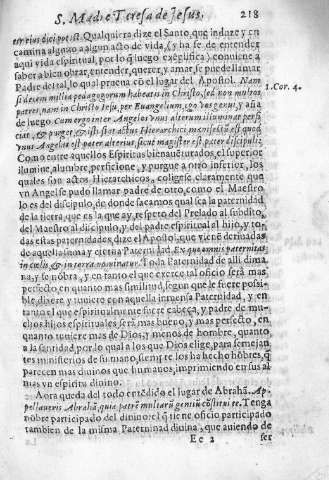 S. Madre Teresa de Jesus. 218
ter rius dici potest. Qualquiera dize el Santo, que induze y en
camina algun o a algun acto de vida, (y ha se de entender
aqui vida espiritual, por lo q̃ luego exẽplifica) conviene a
saber a bien obrar, entender, querer, y amar, se puede llamar
Padre del tal, lo qual prueva cõ el lugar del Apostol. Nam
si decem millia pedagogorum habeatis in Christo, sed non multos
patres, nam in Christo Iesu, per Euangelium, ego vos genui, y aña
de luego. Cum ergo inter Angelos vnus alterum illuminat perfi
ciat, & purget, & isti sint actus Hierarchici, manifestũ est quod
vnus Angelus est pater alterius, sicut magister est pater discipuli.
Como entre aquellos Espiritus bienaventurados, el superior
ilumine, alumbre, perficione, y purgue a otro inferior, los
quales son actos Hierarchicos, coligese claramente que
vn Angel se pudo llamar padre de otro, como el Maestro
lo es del discipulo, de donde sacamos qual sea la paternidad
de la tierra, que es la que ay, respeto del Prelado al subdito,
del Maestro al discipulo, y del padre espiritual al hijo, y to-
das estas paternidades, dize el Apostol, que vienẽ derivadas
de aquella suma y eterna Paternidad. Ex quo omnis paternitas
in cœlis, & in terra nominatur. Toda Paternidad de alli dima
na, y se nõbra, y en tanto el que exerce tal oficio serà mas
perfecto, en quanto mas similitud, segun que le fuere possi-
ble, dixere y tuviere con aquella inmensa Paternidad, y en
tanto el que espiritualmente fuere cabeça, y padre de mu-
chos hijos espirituales serà mas bueno, y mas perfecto, en
quanto tuviere mas de Dios, y menos de hombre, quanto
a la santidad, por lo qual a los que Dios elige, para semejan
tes ministerios de humano, siempre los ha hecho hõbres, q̃
parecen mas divinos que humanos, imprimiendo en sus al
mas vn espiritu divino.
Aora queda del todo entẽdido el lugar de Abrahã. Ap-
pellaveris Abrahã, quia patrẽ multarũ gentiũ cõstitui te. Tenga
nõbre participado del divino el q̃ tiene oficio participado
tambien de la misma Paternidad divina, que aviendo de
Ee 2 ser
1. Cor. 4.